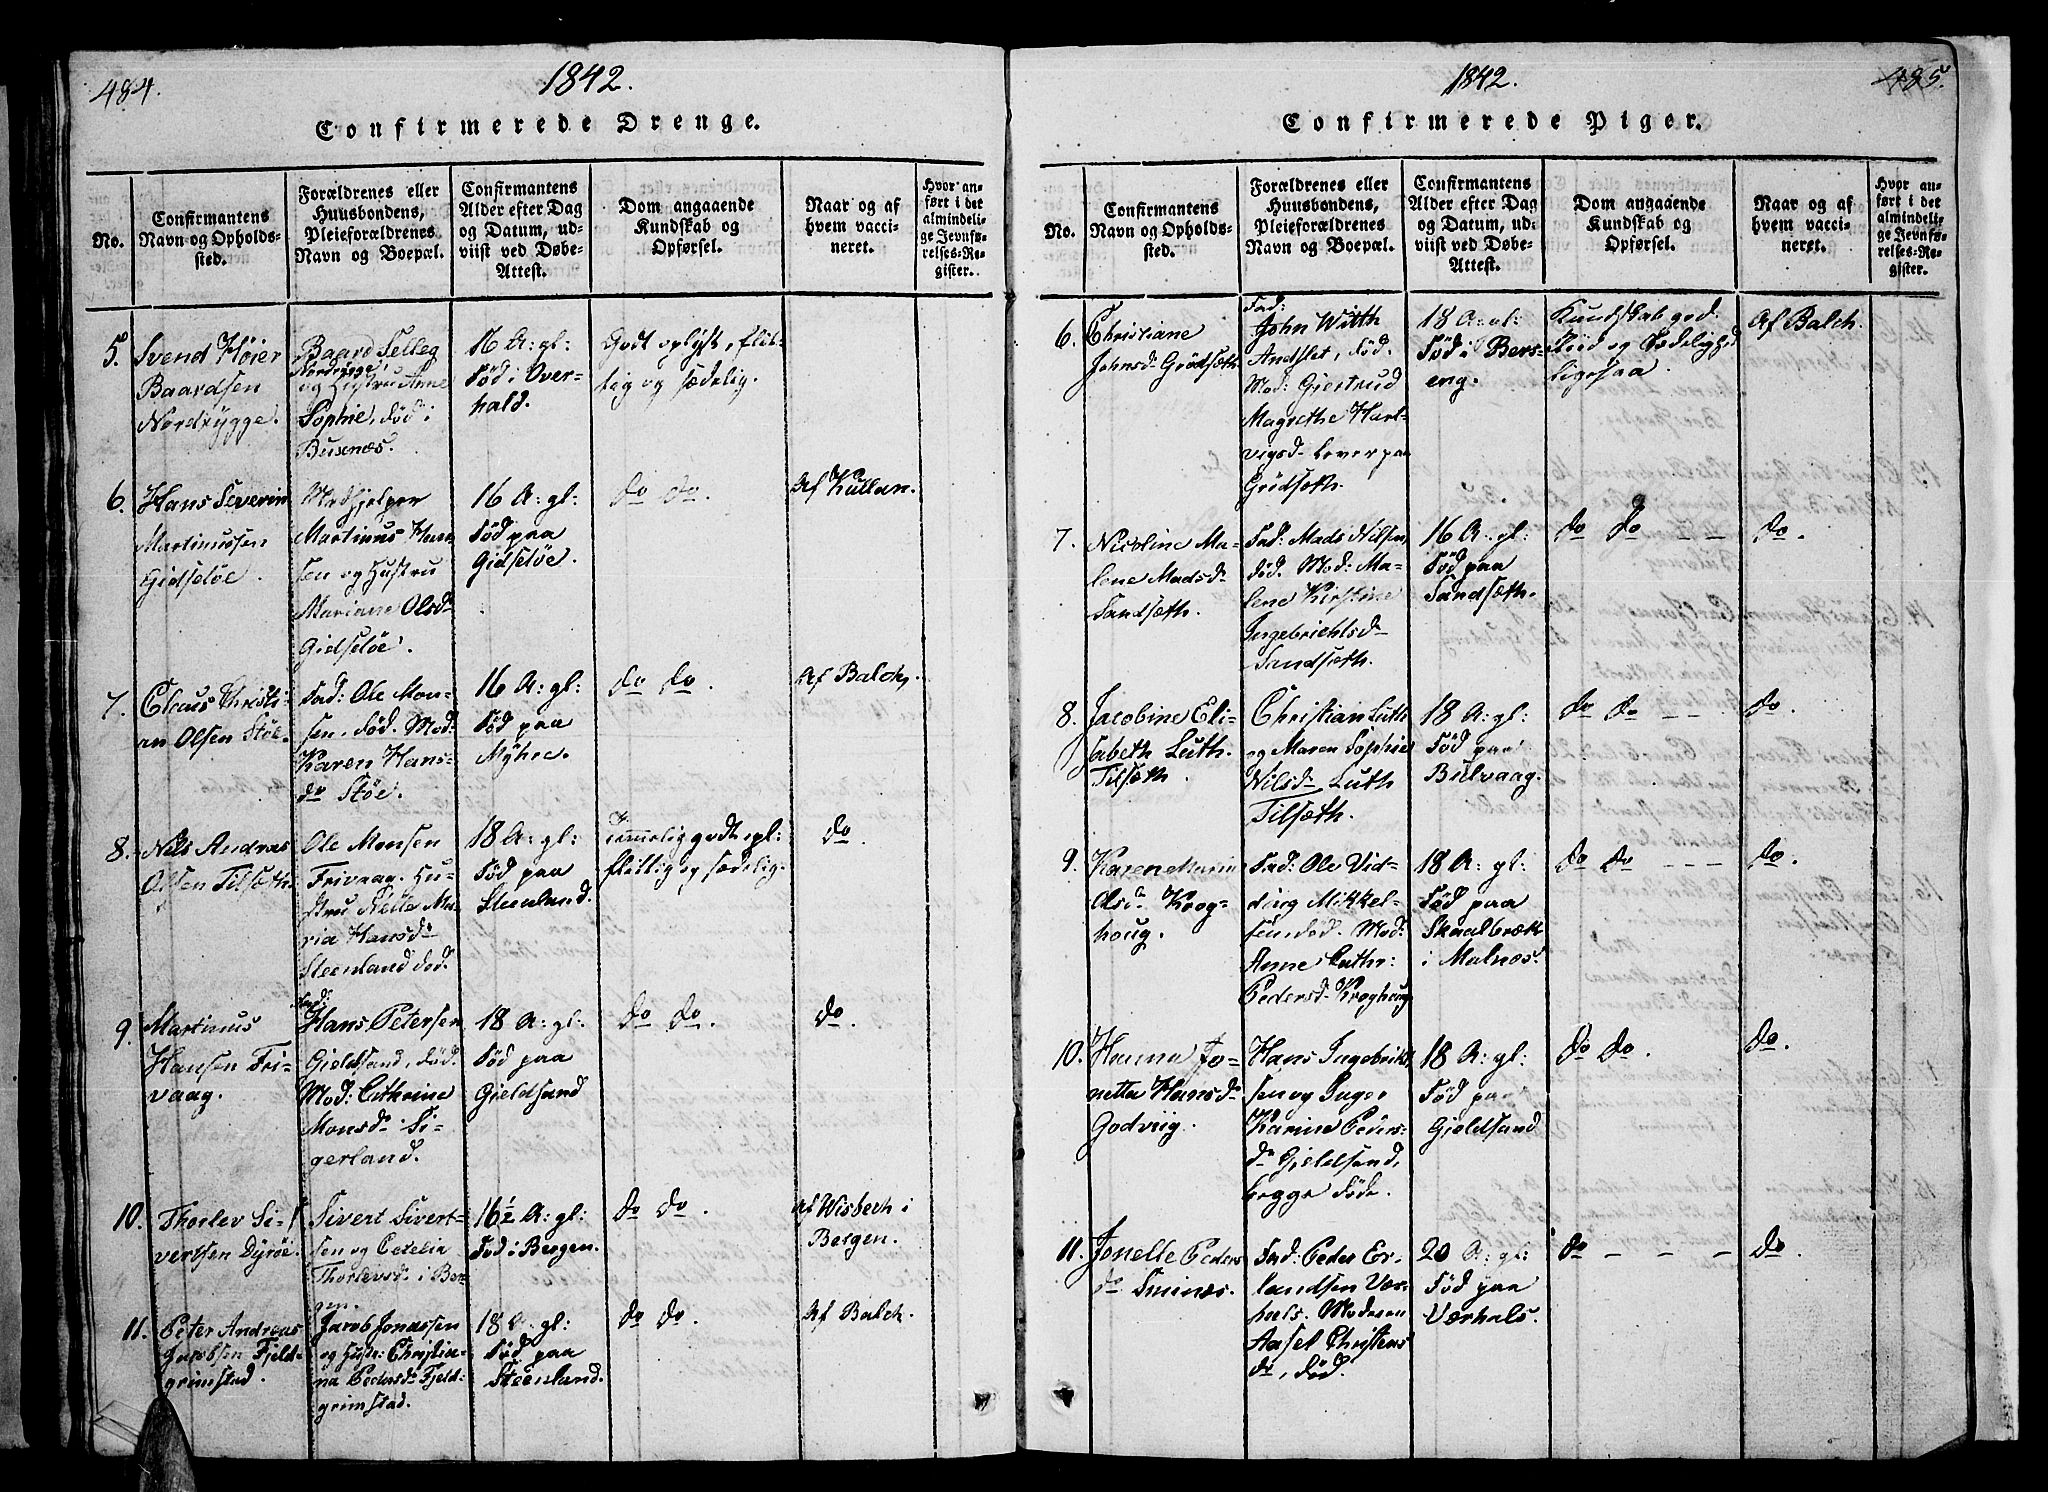 484.
1842.
Confirmerede Drenge.
No.
Confirmantens
Navn og Opholds-
sted.
Forældrenes eller
Huusbondens,
Pleieforældrenes
Navn og Boepæl.
Confirmantens
Alder efter Dag
og Datum, ud-
viist ved Døbe-
Attest.
Dom angaaende
Kundskab og
Opførsel.
Naar og af
hvem vacci-
neret.
Hvor an-
ført i det
almindeli-
ge Jevnfø-
relses-Re-
gister.
5.
Svend Høier
Baardsen
Nordrygge.
Baard Selleg
Nordrygge
og Hustru Anne
Sophie, død i
Busenæs.
16 A: gl:
Fød i Over-
hald.
Godt oplyst, flit-
tig og sædelig.
6.
Hans Severin
Martinussen
Gidseløe.
Medhjelper
Martinus Han-
sen og Hustru
Mariane Olsdr
Gidseløe.
16 A: gl:
Fød paa
Gidseløe.
do do.
Af Kullan.
7.
Claus Christi-
an Olsen Støe.
Fad: Ole Mon-
sen, død. Mod:
Karen Hans-
dr Støe.
16 A: gl:
Fød paa
Myhre.
do do.
Af Balch.
8.
Nils Andreas
Olsen Tilsæth.
Ole Monsen
Frivaag. Hu-
stru Nille Ma-
ria Hansdr
Steenland død.
18 A: gl:
Fød paa
Steenland.
Temmelig godt opl:
flittig og sædelig.
do
9.
Martinus
Hansen Fri-
vaag.
Fad:
Hans Petersen
Gjeldsand, død.
Mod: Cathrine
Monsdr Si-
gerland.
18 A: gl:
Fød paa
Gjeldsand
do do.
do.
10.
Thorlev Si-
vertsen Dyrøe.
Sivert Sivert-
sen og Cecelia
Thorlevsdr i Ber-
gen.
16½ A: gl:
Fød i Bergen.
do do.
Af Wisbech i
Bergen.
11.
Peter Andreas
Jacobsen Fjeld-
grimstad.
Jacob Jonassen
og Hustr: Christin-
na Pedersdr Fjeld-
grimstad.
18 A: gl:
Fød paa
Steenland.
do do.
Af Balch.
1842.
485.
Confirmerede Piger.
No.
Confirmantens
Navn og Opholds-
sted.
Forældrenes eller
Huusbondens,
Pleieforældrenes
Navn og Boepæl.
Confirmantens
Alder efter Dag
og Datum, ud-
viist ved Døbe-
Attest.
Dom angaaende
Kundskab og
Opførsel.
Naar og af
hvem vacci-
neret.
Hvor an-
ført i det
almindeli-
ge Jevnfø-
relses-Re-
gister.
6.
Christiane
Johnsdr Grødsæth.
Fad:
John Witth
Andslet, død.
Mod: Gjertrud
Magrethe Hart-
vigsdr lever paa
Grødsæth.
18 A: gl:
Fød i Bers-
eng.
Kundskab god.
Fliid og Sædelighed
ligesaa.
Af Balch.
7.
Nicoline Ma-
lene Madsdr
Sandsæth.
Fad: Mads Nilsen,
død. Mod: Ma-
lene Kirstine
Ingebrichtsdr
Sandsæth.
16 A: gl:
Fød paa
Sandsæth.
do do - -
do.
8.
Jacobine Eli-
sabeth Luth.
Tilsæth.
Christian Luth
og Maren Sophie
Nilsdr Luth
Tilsæth.
18 A: gl:
Fød paa
Bitvaag.
do do - -
do.
9.
Karen Maria
Olsdr Krog-
houg.
Fad: Ole Vid-
ding Mikkel-
sen død. Mod:
Anne Cathr:
Pedersdr Kroghaug
18 A: gl:
Fød paa
Skaalbræk
i Malnæs.
do do - - -
do.
10.
Hanna Jo-
netta Hansdr
Godviig.
Hans Ingebrikt-
sen og Inger
Karine Peders-
dr Gjeldsand,
begge døde.
18 A: gl:
Fød paa
Gjeldsand
do do.
do.
11.
Jonelle Peders
dr Sminæs.
Fad: Peder Er-
landsen Vær-
hals. Moderen
Aasel Christens
dr, død.
20 A: gl:
Fød paa
Værhals.
do - - - -
do.